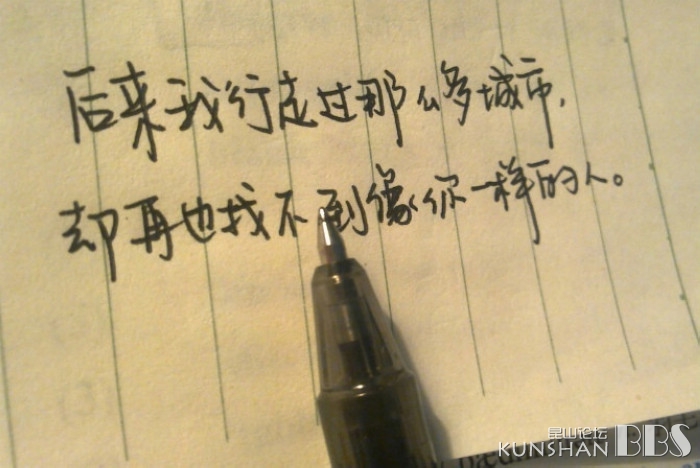 后来我行走过那么多城市，
却再也找不到像你一样的人。
昆山论坛
KUNSHAN BBS